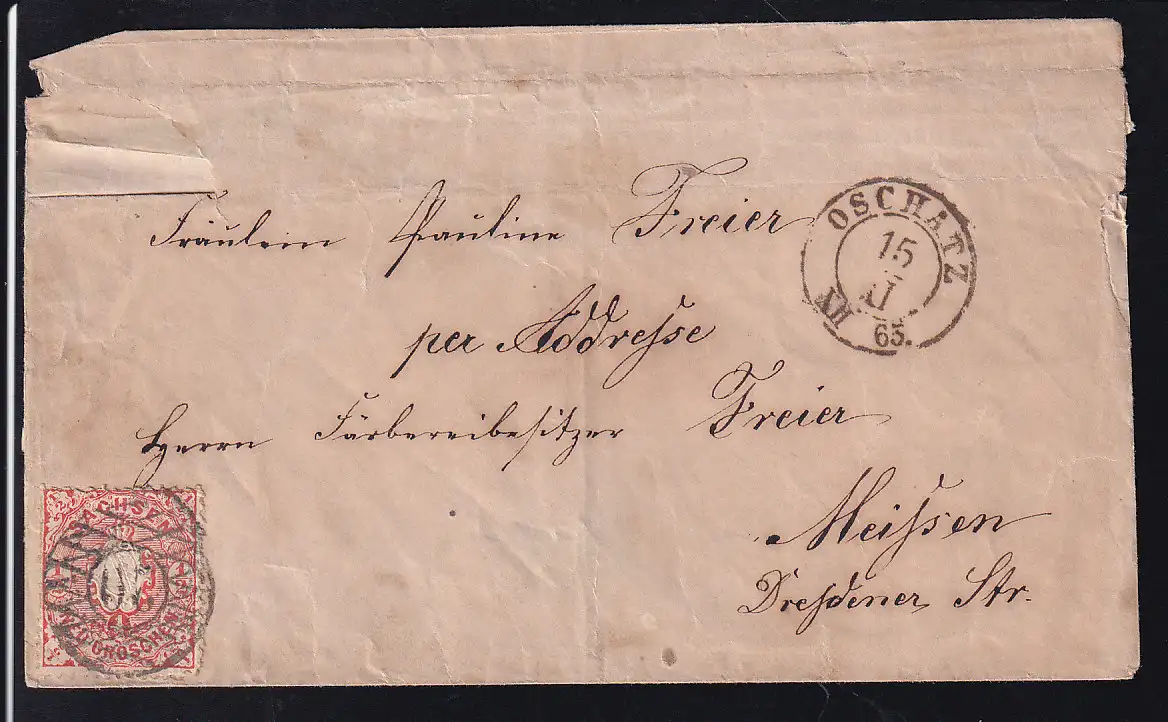 OSCHATZ
15
XI
65.
Fräulein Pauline Freier
per Addresse
Herrn Färbereibesitzer Freier
Meissen
Dresdener Str.
SACHSEN
NEUGROSCHEN